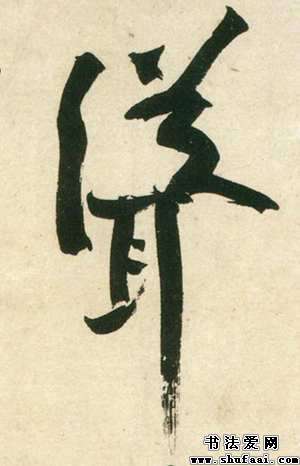 聳
书法爱网
www.shufaai.com